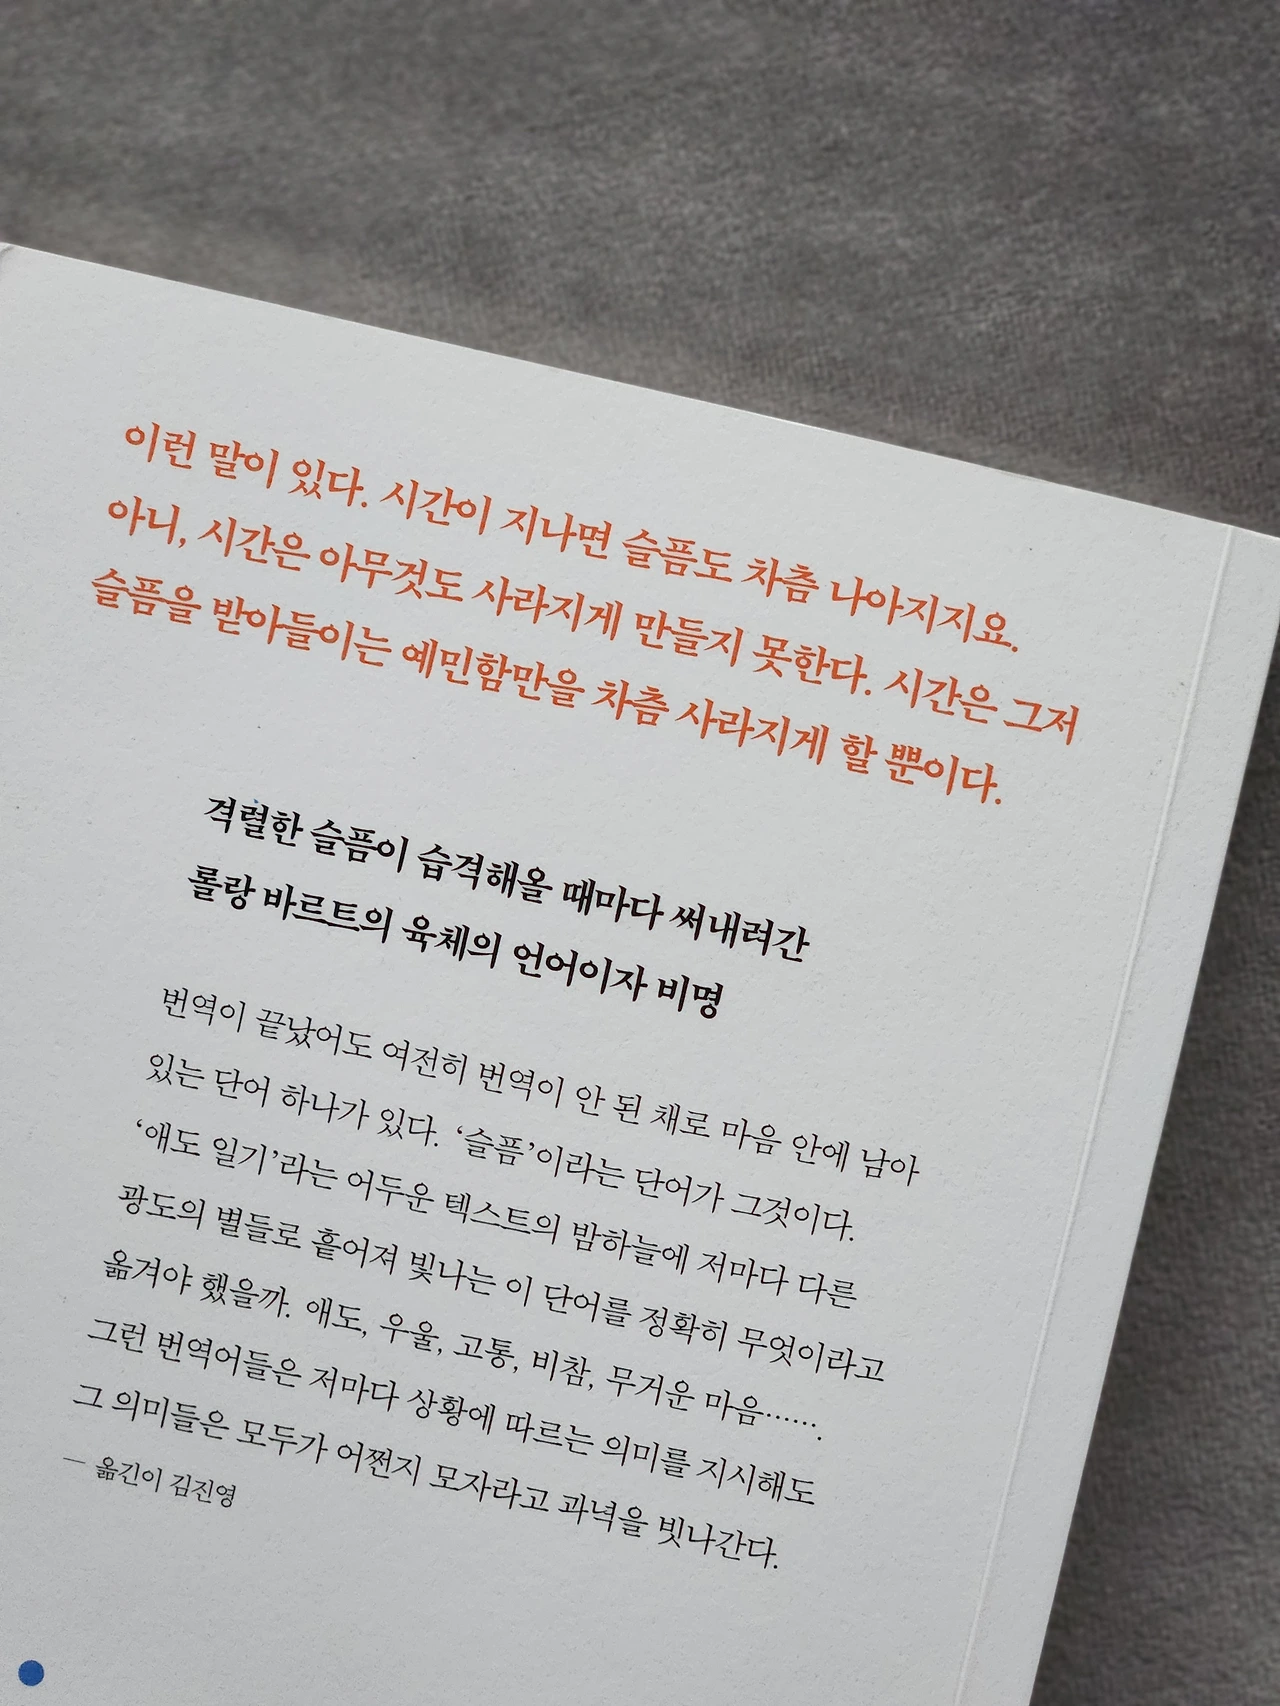 이런 말이 있다. 시간이 지나면 슬픔도 차츰 나아지지요.
아니, 시간은 아무것도 사라지게 만들지 못한다. 시간은 그저
슬픔을 받아들이는 예민함만을 차츰 사라지게 할 뿐이다.
격렬한 슬픔이 습격해올 때마다 써내려간
롤랑 바르트의 육체의 언어이자 비명
번역이 끝났어도 여전히 번역이 안 된 채로 마음 안에 남아
있는 단어 하나가 있다. ‘슬픔’이라는 단어가 그것이다.
‘애도 일기’라는 어두운 텍스트의 밤하늘에 저마다 다른
광도의 별들로 흩어져 빛나는 이 단어를 정확히 무엇이라고
옮겨야 했을까. 애도, 우울, 고통, 비참, 무거운 마음…….
그런 번역어들은 저마다 상황에 따르는 의미를 지시해도
그 의미들은 모두가 어쩐지 모자라고 과녁을 빗나간다.
— 옮긴이 김진영